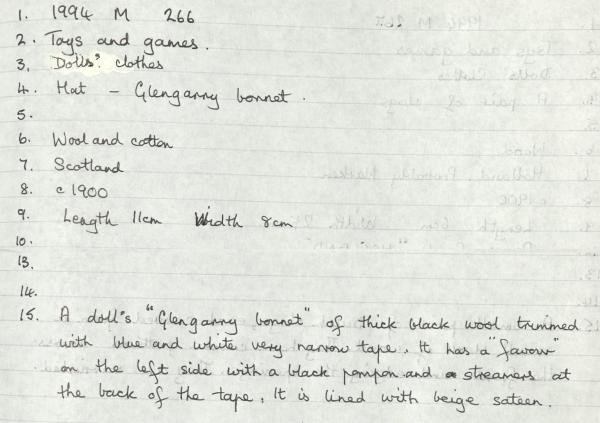 1. 1994 M 266
2. Toys and games.
3. Dolls' clothes
4. Hat - Glengarry bonnet.
5.
6. Wool and cotton
7. Scotland
8. c 1900
9. Length 11cm Width 8cm
10.
13.
14.
15. A doll's "Glengarry bonnet" of thick black wool trimmed
with blue and white very narrow tape. It has a "favour"
on the left side with a black pompon and streamers at
the back of the tape. It is lined with beige sateen.